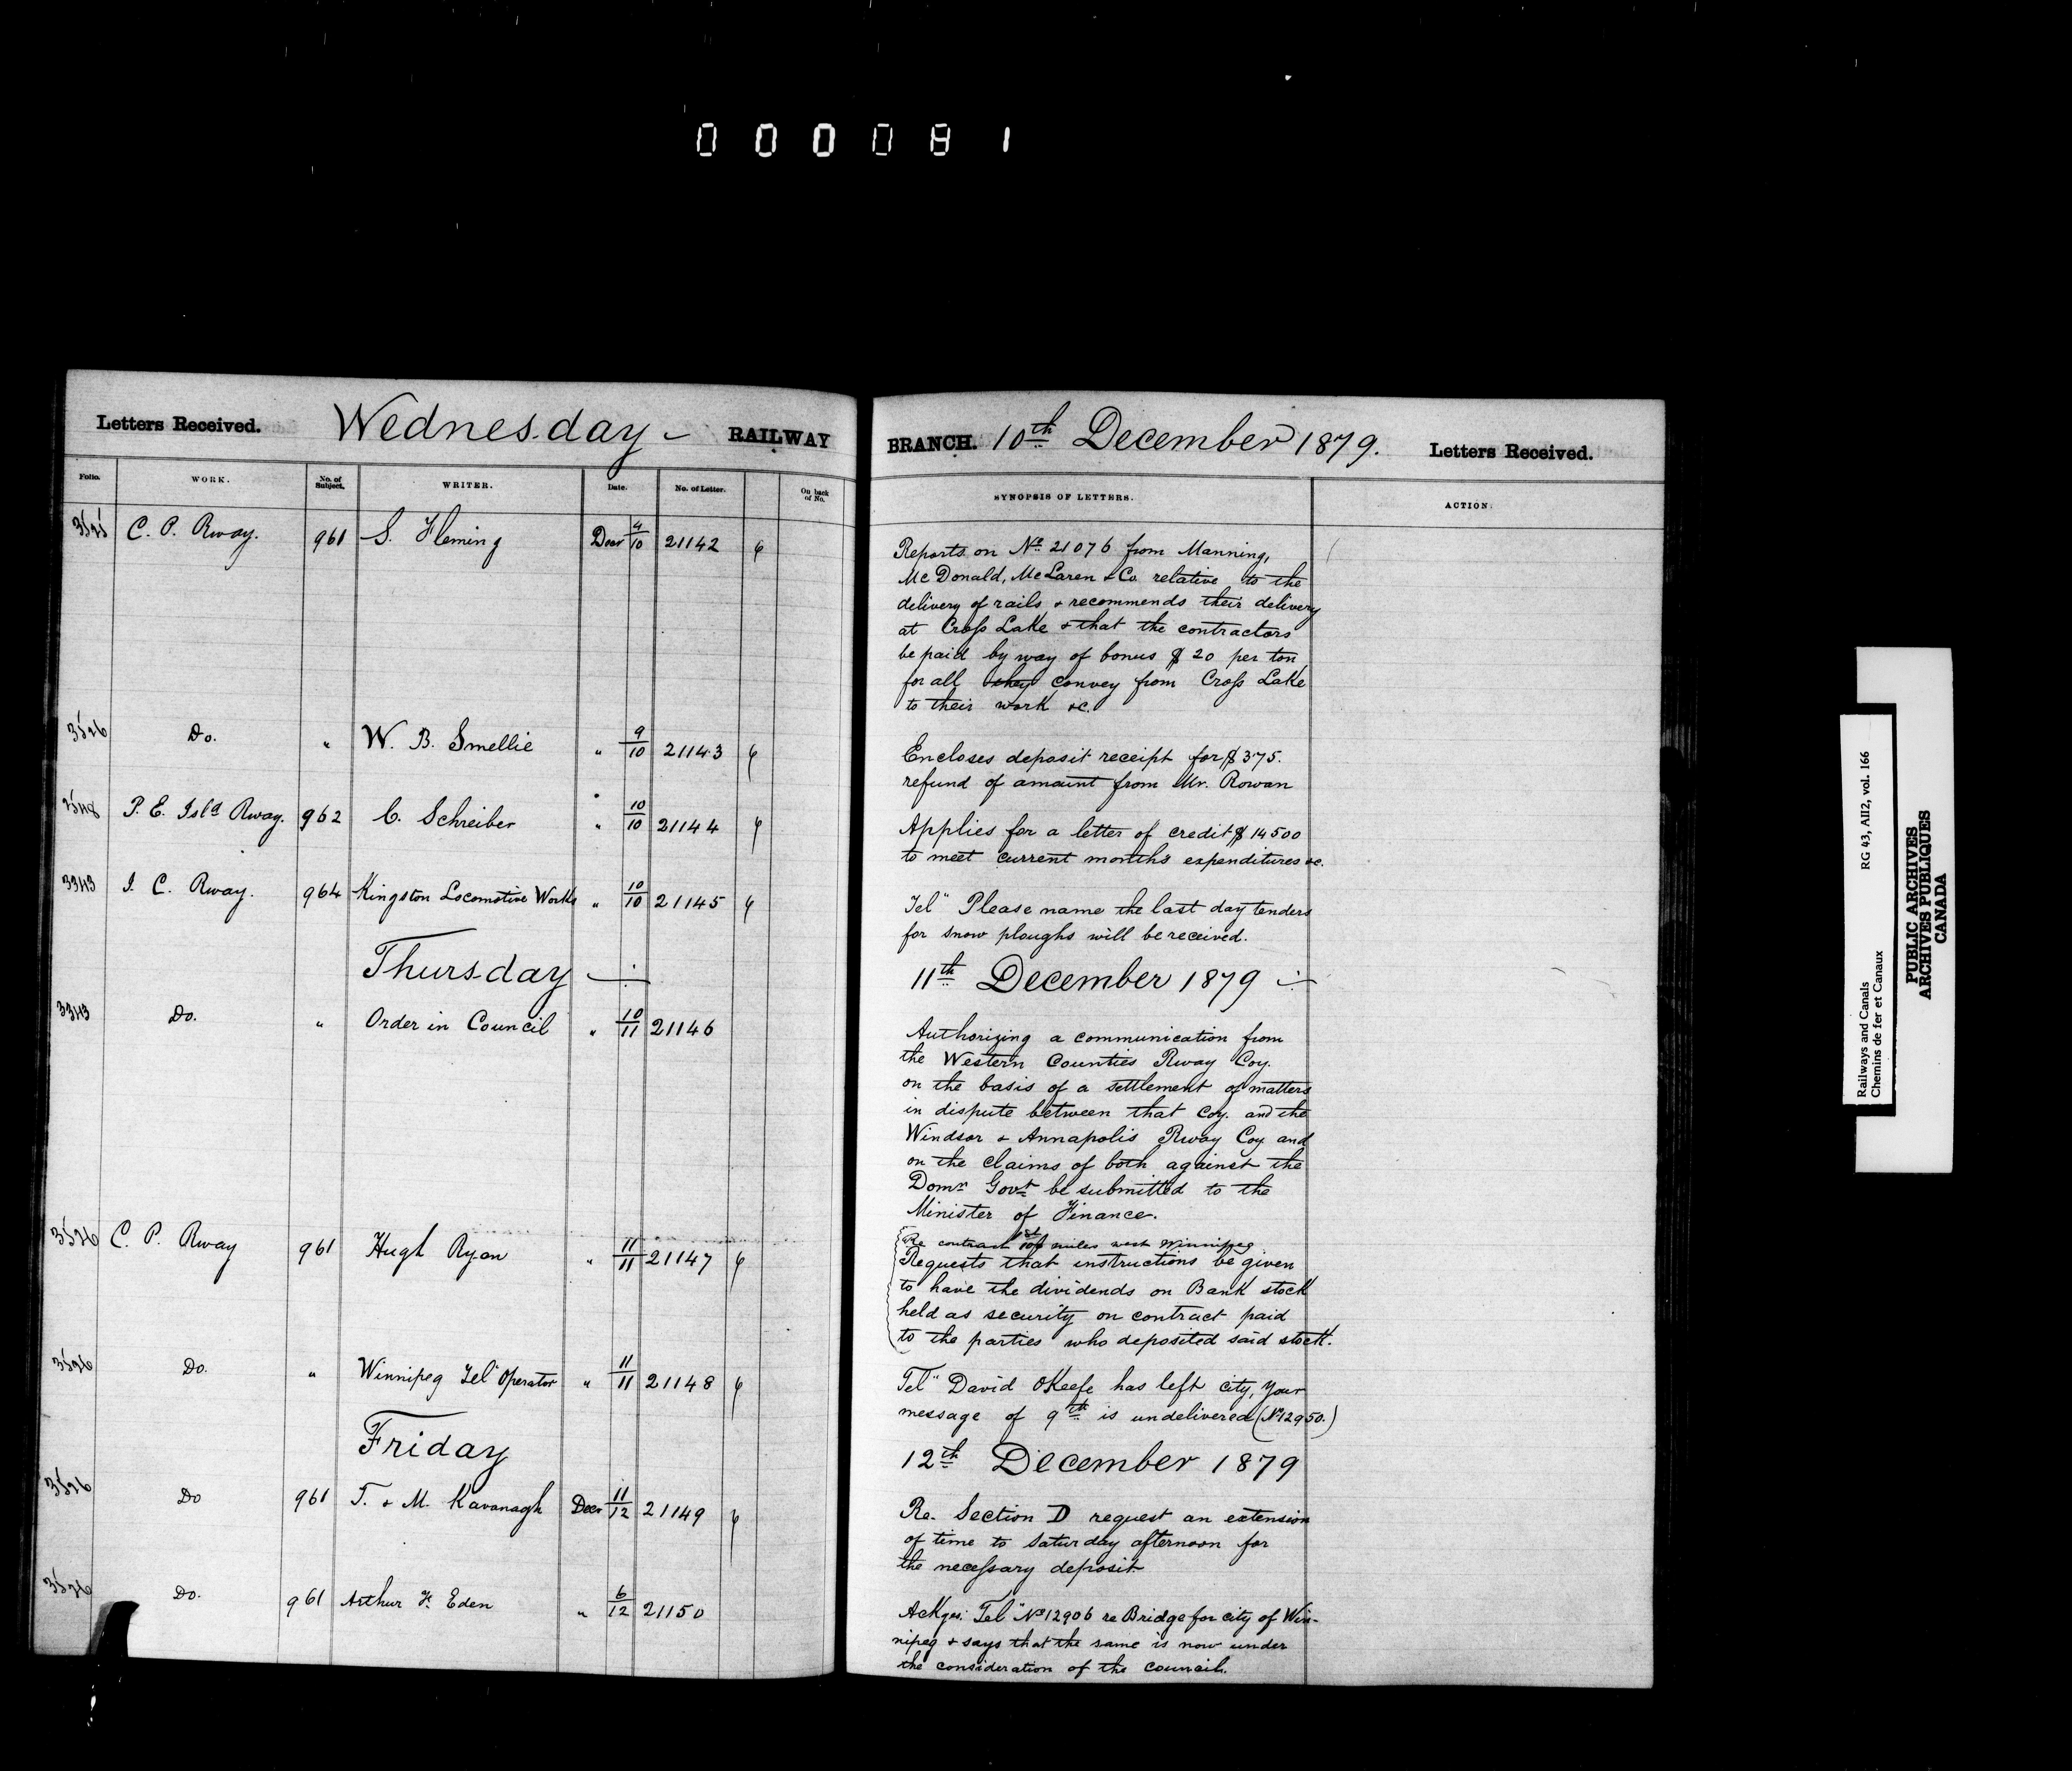 000081
Letters Received. Wednesday RAILWAY BRANCH. 10th December 1879. Letters Received.
Folio. WORK. No. of Subject. WRITER. Date. No. of Letter. On back of No. SYNOPSIS OF LETTERS. ACTION.
C. P. Rway. 961 S. Fleming Decr 4/10 21142
Reports on No. 21076 from Manning,
McDonald, McLaren & Co. relative to the
delivery of rails & recommends their delivery
at Cross Lake & that the contractors
be paid by way of bonus $20 per ton
for all they convey from Cross Lake
to their work &c.
3526 Do. " W. B. Smellie " 9/10 21143
Encloses deposit receipt for $375.
refund of amount from Mr. Rowan
P. E. Isld Rway. 962 C. Schreiber " 10/10 21144
Applies for a letter of credit $14500
to meet current months expenditures &c.
3343 I. C. Rway. 964 Kingston Locomotive Works " 10/10 21145
Tel" Please name the last day tenders
for snow ploughs will be received.
Thursday 11th December 1879
3343 Do. " Order in Council " 10/11 21146
Authorizing a communication from
the Western Counties Rway Coy.
on the basis of a settlement of matters
in dispute between that Coy. and the
Windsor & Annapolis Rway Coy and
on the claims of both against the
Domn Govt be submitted to the
Minister of Finance.
3526 C. P. Rway 961 Hugh Ryan " 11/11 21147
Re contract 1st 100 miles west Winnipeg
Requests that instructions be given
to have the dividends on Bank stock
held as security on contract paid
to the parties who deposited said stock.
3526 Do. " Winnipeg Tel Operator " 11/11 21148
Tel" David OKeefe has left city, your
message of 9th is undelivered (No 12950.)
Friday 12th December 1879
3526 Do 961 T. & M. Kavanagh Decr 11/12 21149
Re. Section D request an extension
of time to Saturday afternoon for
the necessary deposit
3526 Do. 961 Arthur F. Eden " 6/12 21150
Ackges. Tel" No 12906 re Bridge for city of Win-
nipeg & says that the same is now under
the consideration of the council.
Railways and Canals RG 43, AII2, vol. 166
Chemins de fer et Canaux
PUBLIC ARCHIVES
ARCHIVES PUBLIQUES
CANADA